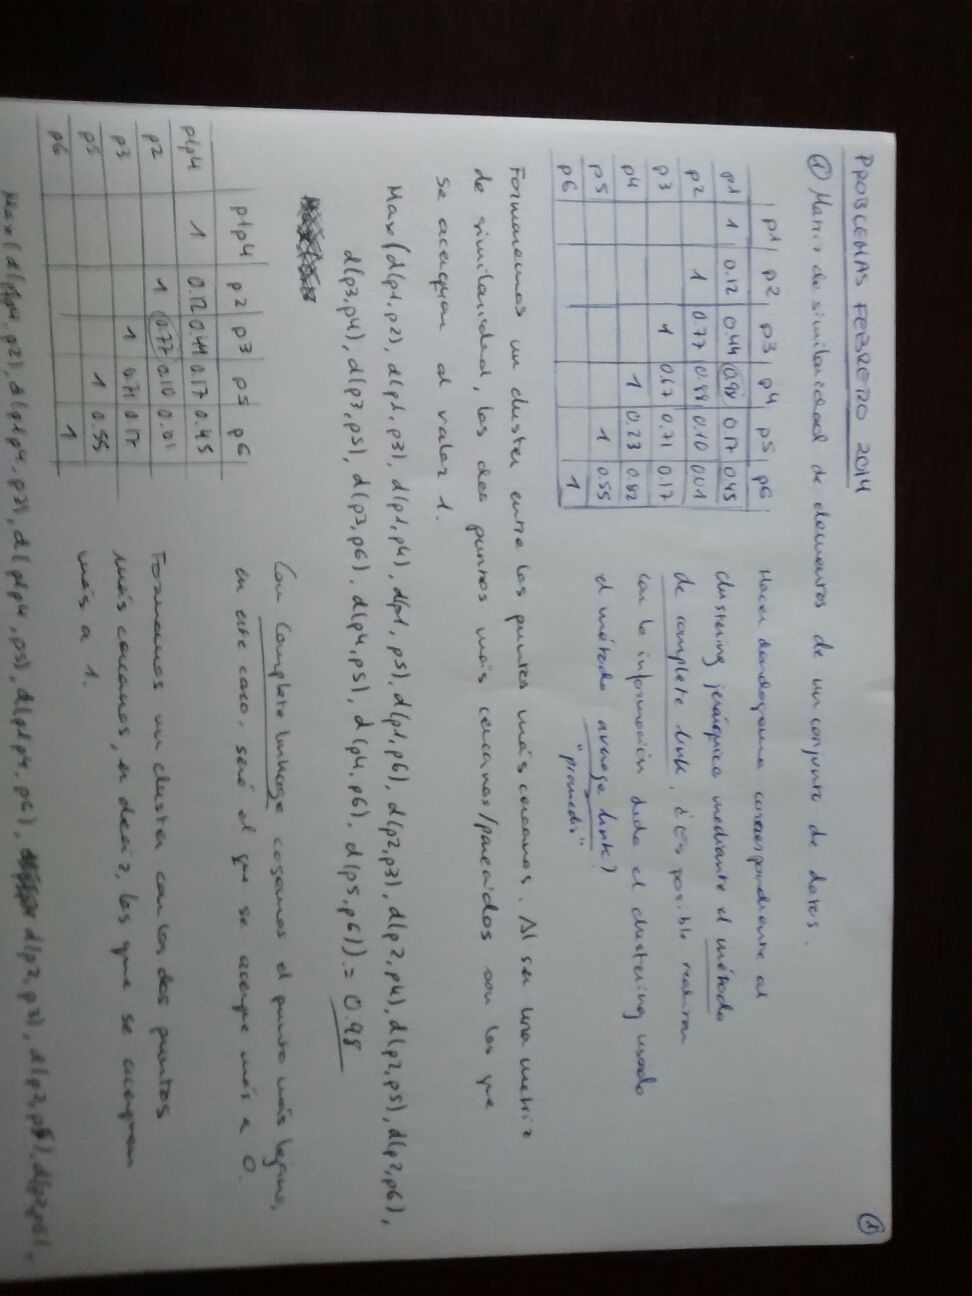 PROBLEMAS FEBRERO 2014
1
① Matriz de similaridad de elementos de un conjunto de datos.
p1 p2 p3 p4 p5 p6
p1 1 0.12 0.44 0.98 0.17 0.45
p2 1 0.77 0.88 0.10 0.01
p3 1 0.67 0.71 0.17
p4 1 0.23 0.82
p5 1 0.55
p6 1
Hacer correspondiente al
clustering jerárquico mediante el método
de complete link, ¿Es posible realizar
con la información dada el clustering usando
el método average link?
"promedio"
Formaremos un cluster entre los puntos más cercanos. Al ser una matriz
de similaridad, los dos puntos más cercanos/parecidos son los que
se acerquen al valor 1.
Max(d(p1,p2), d(p1,p3), d(p1,p4), d(p1,p5), d(p1,p6), d(p2,p3), d(p2,p4), d(p2,p5), d(p2,p6),
d(p3,p4), d(p3,p5), d(p3,p6), d(p4,p5), d(p4,p6), d(p5,p6)) = 0.98
Con Complete linkage cogemos el punto más lejano,
en este caso, será el que se acerque más a 0.
p1p4 p2 p3 p5 p6
p1p4 1 0.12 0.44 0.17 0.45
p2 1 0.77 0.10 0.01
p3 1 0.71 0.17
p5 1 0.55
p6 1
Formamos un cluster con los dos puntos
más cercanos, es decir, los que se acerquen
más a 1.
Max(d(p1p4,p2), d(p1p4,p3), d(p1p4,p5), d(p1p4,p6), d(p2,p3), d(p2,p5), d(p2,p6),